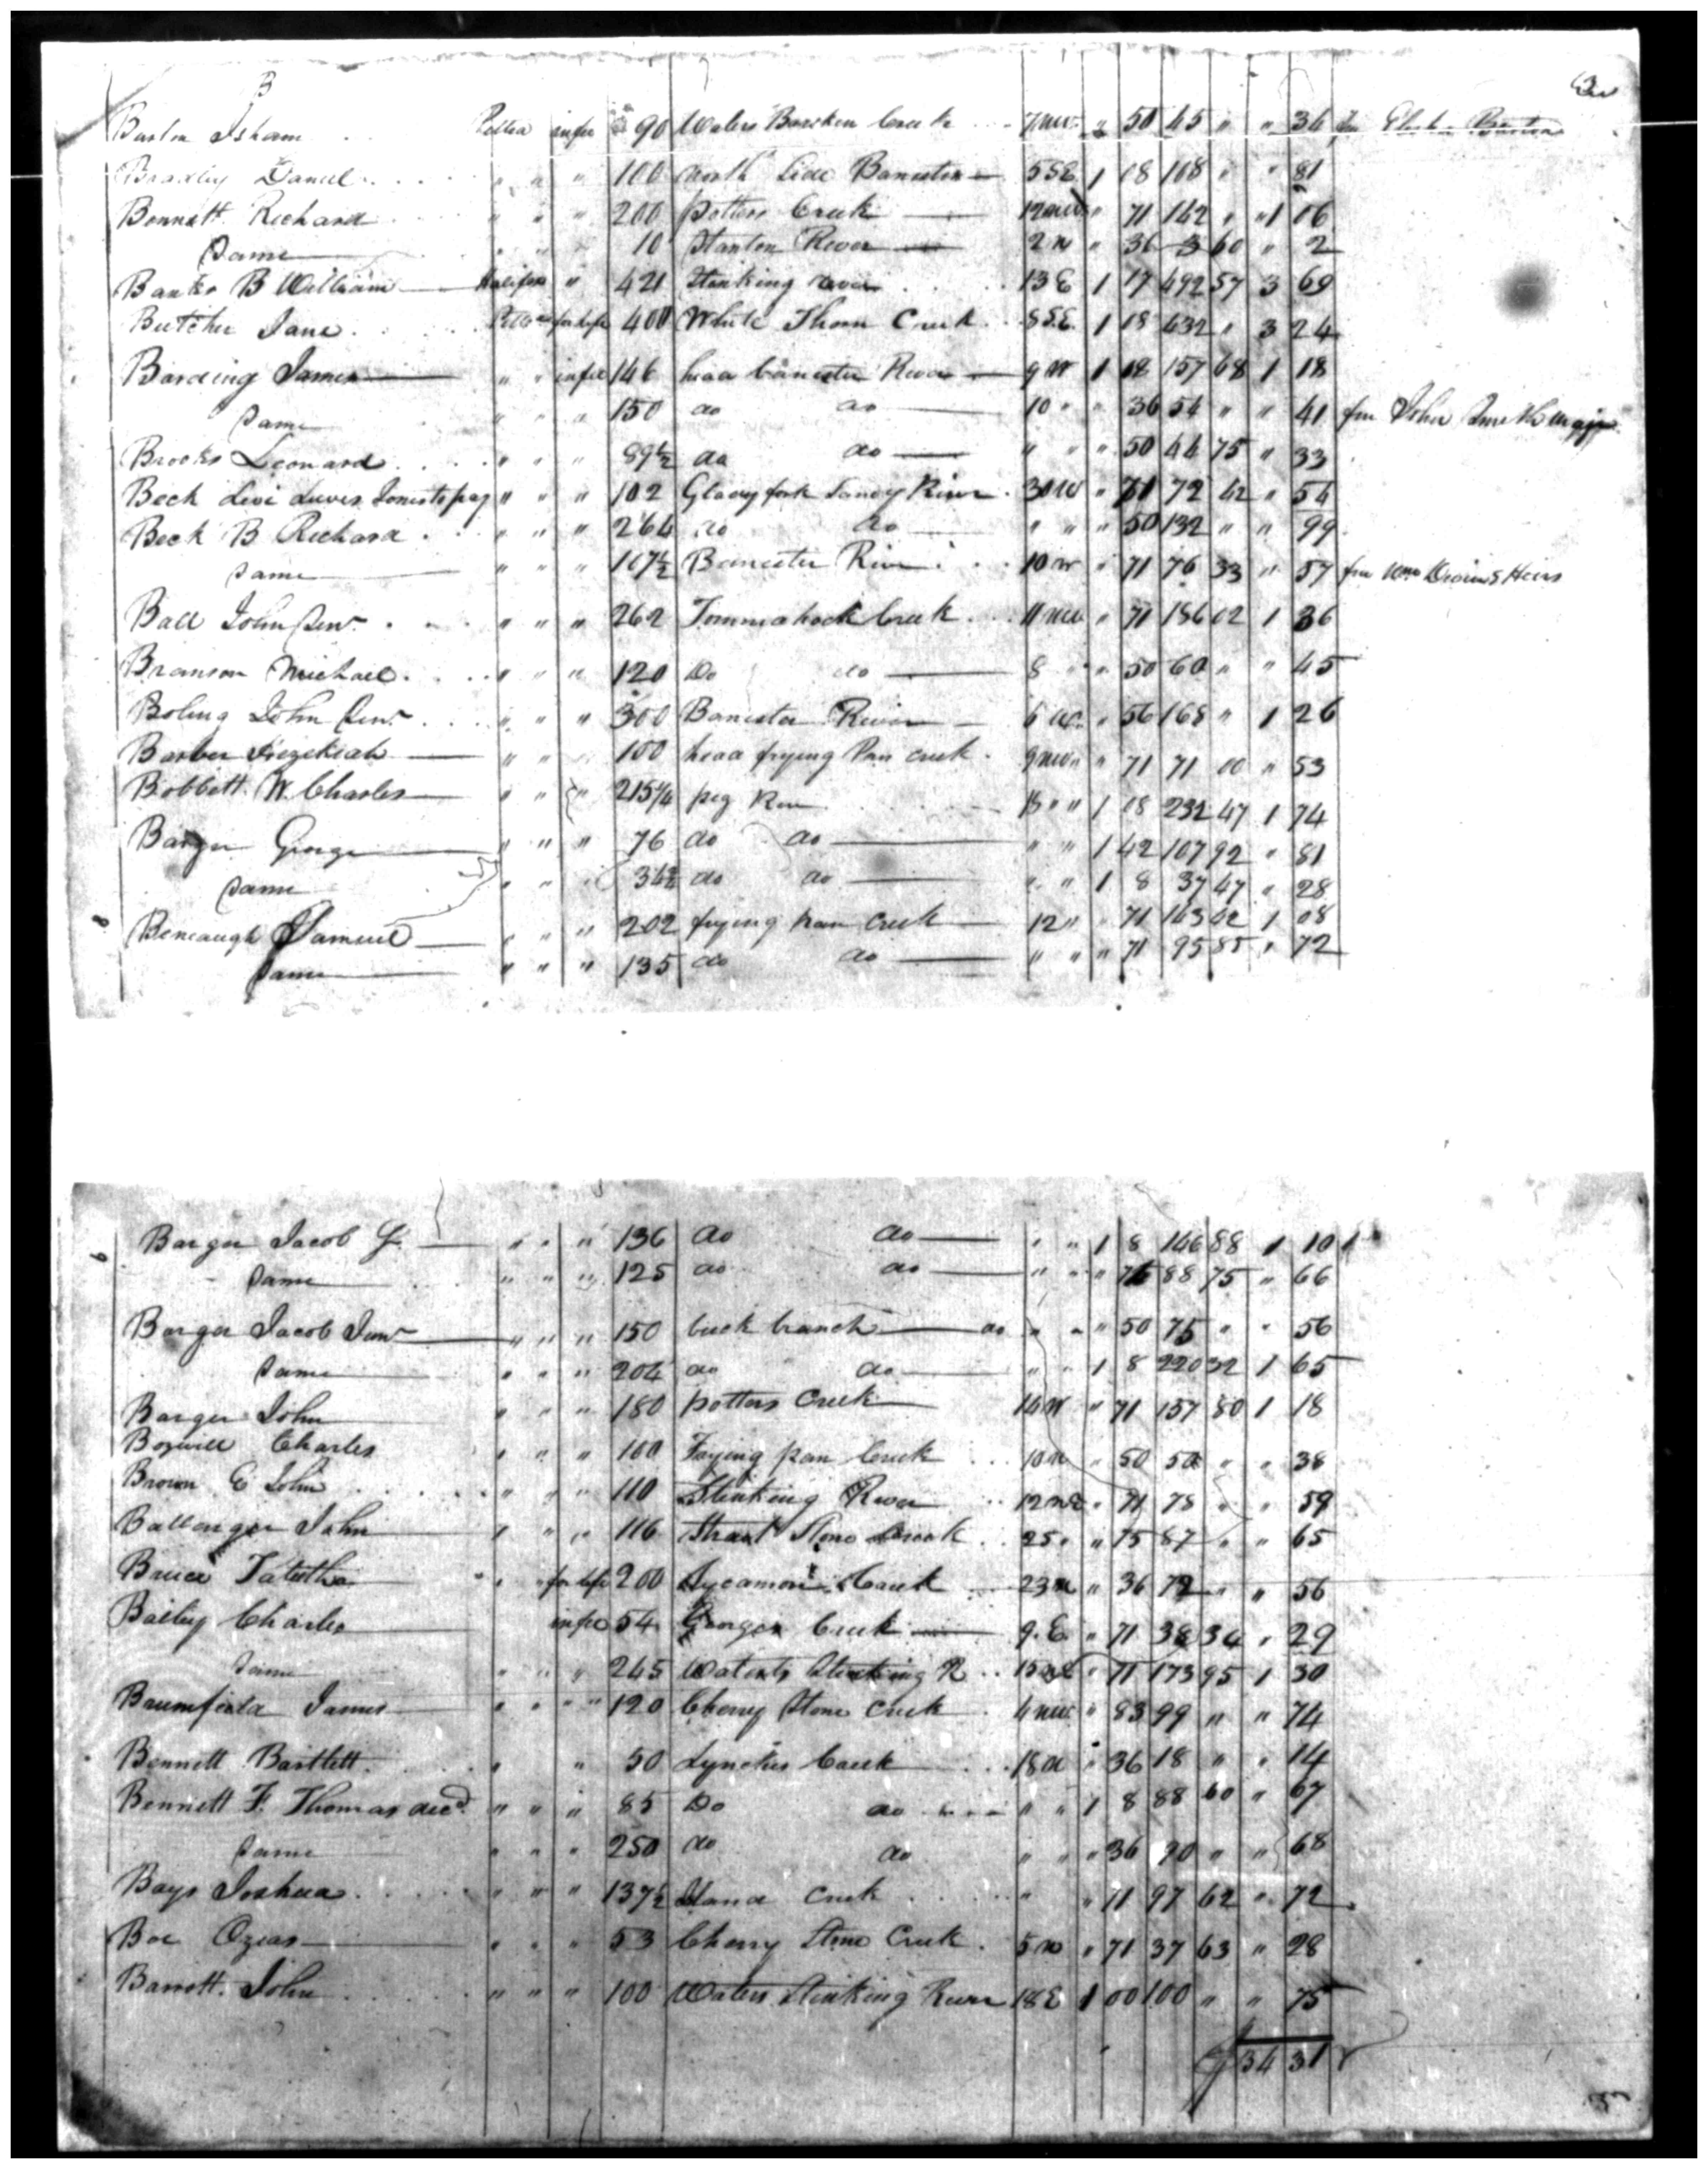 B
Burton Isham Pittsa infee 90 Waters Bearskin Creek 7 NW " 50 45 " " 34 fm Elisha Burton
Bradley Daniel " " " 100 North Side Banester 5 SE 1 08 108 " " 81
Bennett Richard " " " 200 potters Creek 12 NW " 71 142 " " 1 06
Same " " " 10 Stanton River 2 N " 36 3 60 " 2
Banks B William Halifax " 421 Stinking River 13 E 1 17 492 57 3 69
Butcher Jane Pittsa for life 400 White Thorn Creek 8 SE 1 08 432 " 3 24
Barding James " " infee 146 head banester River 9 W 1 08 157 68 1 18
Same " " " 150 do do 10 " " 36 54 " " 41 fm John Smith Majr
Brooks Leonard " " " 89½ do do " " " 50 44 75 " 33
Beck Levi Luves Jones to pay " " " 102 Glady fork Sandy River 30 W " 71 72 42 " 54
Beck B Richard " " " 264 do do " " " 50 132 " " 99
Same " " " 107½ Banester River 10 W " 71 76 33 " 57 fm Wm Heirs
Ball John Senr " " " 262 Tommahock Creek 11 NW " 71 186 02 1 36
Branson Michael " " " 120 Do do 8 " " 50 60 " " 45
Boling John Senr " " " 300 Banester River 6 W " 56 168 " 1 26
Barber Hezekiah " " " 100 head frying Pan creek 9 NW " 71 71 00 " 53
Bobbett W. Charles " " " 215¼ pig River " " 1 08 232 47 1 74
Barger George " " " 76 do do " " 1 42 107 92 " 81
Same " " " 34¾ do do " " 1 8 37 47 " 28
Beneaugh Samuel " " " 202 frying pan Creek 12 " " 71 143 42 1 08
Same " " " 135 do do " " " 71 95 85 " 72
Barger Jacob G. " " " 136 do do " " 1 8 146 88 1 10
Same " " " 125 do do " " " 71 88 75 " 66
Barger Jacob Junr " " " 150 buck branch do " " " 50 75 " " 56
Same " " " 204 do do " " 1 8 220 32 1 65
Barger John " " " 180 potters Creek 14 N " 71 157 80 1 18
Bozwell Charles " " " 100 Frying pan Creek 10 N " 50 50 " " 38
Brown E John " " " 110 Stinking River 12 NE " 71 78 " " 59
Ballenger John " " " 116 Strait Stone Creek 25 " " 75 87 " " 65
Bruce Tabitha " " for life 200 Sycamore Creek 23 N " 36 72 " " 56
Bailey Charles infee 54 Georges Creek 9 E " 71 38 34 " 29
Same " " " 245 Waters Stinking R 15 NE " 71 173 95 1 30
Brumfield James " " " " 120 Cherry Stone Creek 4 NW " 83 99 " " 74
Bennett Bartlett " " 50 Lynches Creek 18 N " 36 18 " " 14
Bennett F. Thomas decd. " " " 85 Do do " " 1 8 88 40 " 67
Same " " " 250 do do " " " 36 90 " " 68
Bays Joshua " " " 137½ Stand Creek " " 71 97 62 " 72
Boe Ozias " " " 53 Cherry Stone Creek 5 N " 71 37 63 " 28
Barrett John " " " 100 Waters Stinking River 18 E 1 00 100 " " 75
$34 31